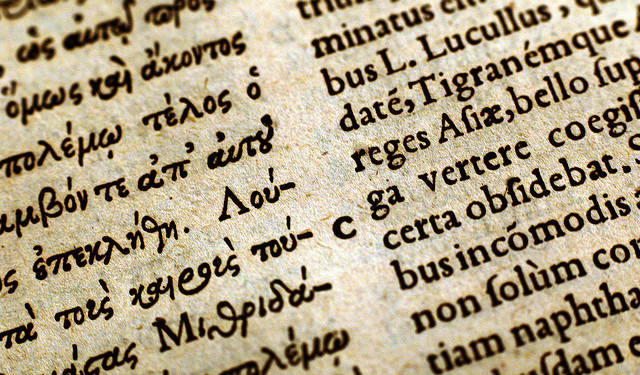 ὅμως καὶ ἄκοντος
πολέμῳ τέλος ὁ
αμβόν τε ἀπ' αὐτοῦ
ς ἐπεκλήθη. Λού-
τὰ τοὺς καιροὺς τού-
Μιθριδά-
πολέμῳ
C
minatus
bus L. Lucullus,
daté, Tigranémque
reges Aſiæ, bello ſup
ga vertere coegiſ
certa obſidebat.
bus incómodis
non ſolùm con
tiam naphtha